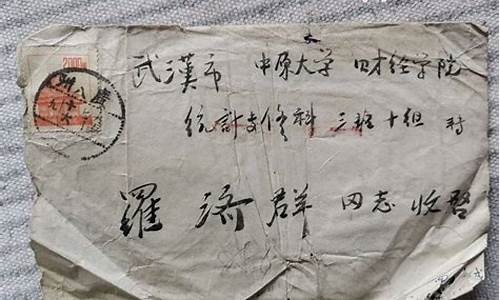 2000
武漢市 中原大学 财经学院
统計专修科 三班十组
羅济群 同志 收启